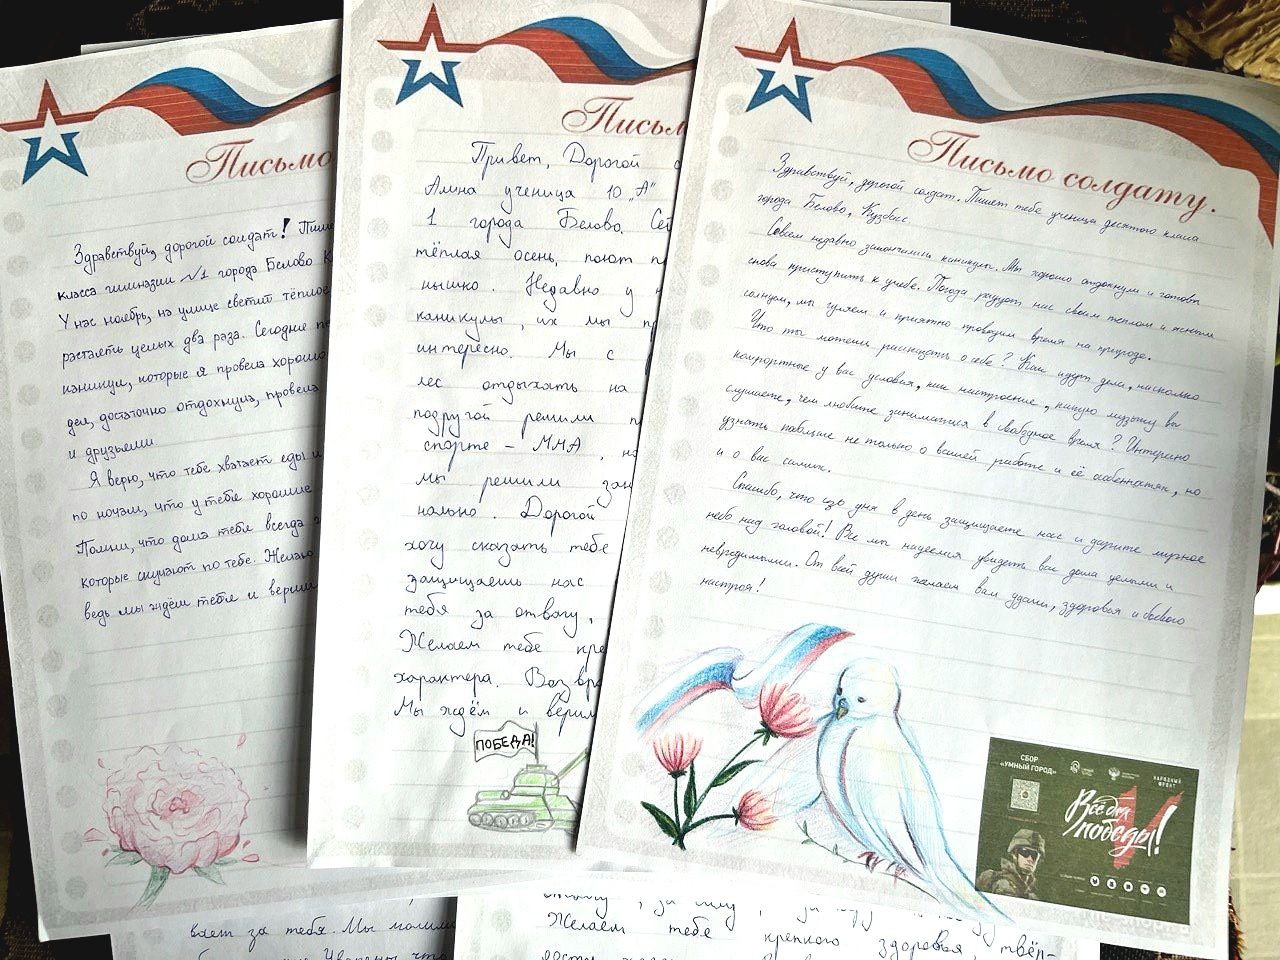 Письмо
Здравствуй, дорогой солдат! Пиш
класса гимназии №1 города Белово К
У нас ноябрь, на улице светит тёплое
растаять целых два раза. Сегодня п
каникул, которые я провела хорошо
дел, достаточно отдохнула, провела
и друзьями.
Я верю, что тебе хватает еды и
по ночам, что у тебя хорошие
Помни, что дома тебя всегда
которые скучают по тебе. Желаю
ведь мы ждём тебя и верим
Письм
Привет, Дорогой с
Алина ученица 10 „А"
1 города Белово. Сей
тёплая осень, поют п
нышко. Недавно у н
каникулы, их мы пр
интересно. Мы с
лес отдыхать на
подругой решили п
спорте - ММА, но
мы решили зан
нально. Дорогой
хочу сказать тебе
защищаешь нас
тебя за отвагу,
Желаем тебе кре
характера. Возвра
Мы ждём и верим
ПОБЕДА!
Письмо солдату.
Здравствуй, дорогой солдат. Пишет тебе ученица десятого класса
города Белово, Кузбасс.
Совсем недавно закончились каникулы. Мы хорошо отдохнули и готовы
снова приступить к учебе. Погода радует нас своим теплом и ясным
солнцем, мы гуляем и приятно проводим время на природе.
Что ты можешь рассказать о себе? Как идут дела, насколько
комфортные у вас условия, как настроение, какую музыку вы
слушаете, чем любите заниматься в свободное время? Интересно
узнать побольше не только о вашей работе и её особенностях, но
и о вас самих.
Спасибо, что изо дня в день защищаете нас и дарите мирное
небо над головой! Все мы надеемся увидеть вас дома целыми и
невредимыми. От всей души желаем вам удачи, здоровья и боевого
настроя!
СБОР
«УМНЫЙ ГОРОД»
НАРОДНЫЙ
ФРОНТ
Всё для
победы!
вает за тебя. Мы
за силу, за
Желаем тебе крепкого здоровья, твёр-